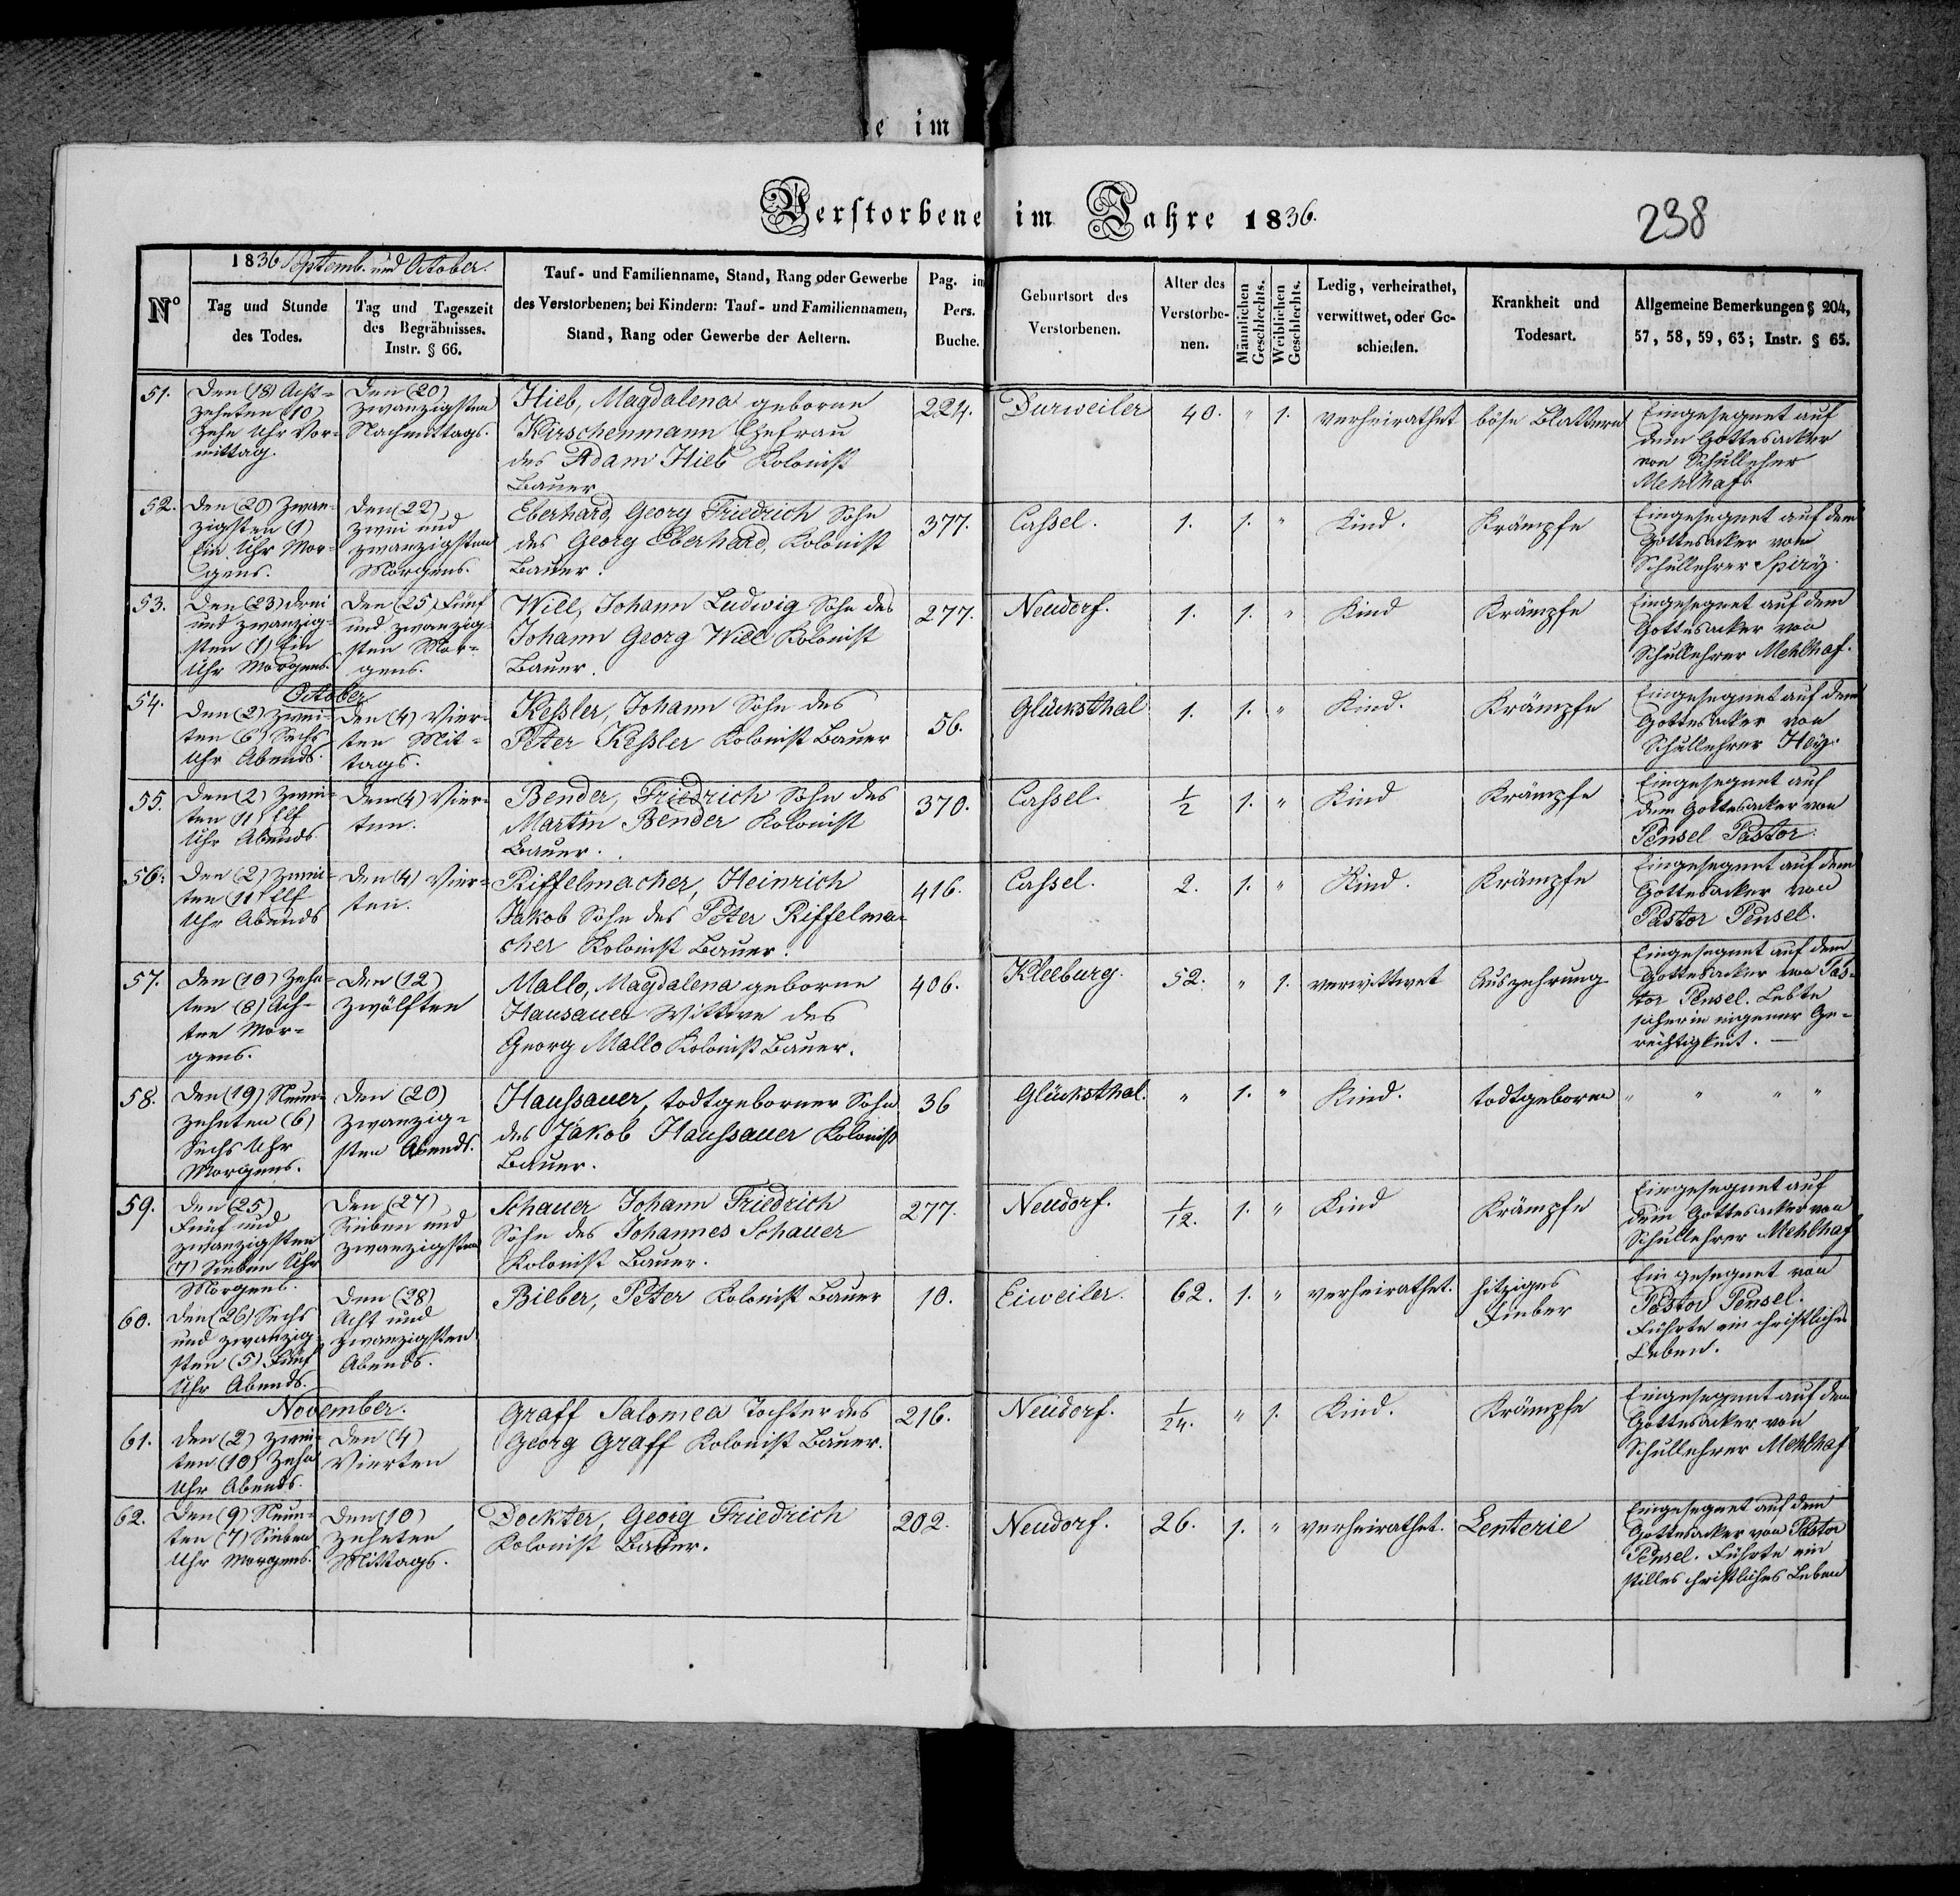 e im
Verstorbene im Jahre 1836.
238
N°
1836 Septemb. und October.
Tag und Stunde
des Todes.
Tag und Tageszeit
des Begräbnisses.
Instr. § 66.
Tauf- und Familienname, Stand, Rang oder Gewerbe
des Verstorbenen; bei Kindern: Tauf- und Familiennamen,
Stand, Rang oder Gewerbe der Aeltern.
Pag. im
Pers.
Buche.
Geburtsort des
Verstorbenen.
Alter des
Verstorbe-
nen.
Männlichen
Geschlechts.
Weiblichen
Geschlechts.
Ledig, verheirathet,
verwittwet, oder Ge-
schieden.
Krankheit und
Todesart.
Allgemeine Bemerkungen § 204,
57, 58, 59, 63; Instr. § 65.
51.
Den (18) Acht-
zehnten (10)
Zehn Uhr Vor-
mittag.
Den (20)
zwanzigsten
Nachmittags.
Hieb, Magdalena geborne
Kirschenmann Ehefrau
des Adam Hieb Kolonist
Bauer
224.
Durweiler
40.
"
1.
verheirathet
böse Blattern
Eingesegnet auf
dem Gottesacker
von Schullehrer
Mehlhaf.
52.
Den (20) Zwan-
zigsten (1)
Ein Uhr Mor-
gens.
Den (22)
zwei und
zwanzigsten
Morgens.
Eberhard, Georg Friedrich Sohn
des Georg Eberhard, Kolonist
Bauer.
377.
Cassel.
1.
1.
"
Kind.
Krämpfe
Eingesegnet auf dem
Gottesacker vom
Schullehrer Spiry.
53.
Den (23) drei
und zwanzig-
sten (1) Ein
Uhr Morgens.
Den (25) Fünf
und zwanzig-
sten Mor-
gens.
Will, Johann Ludwig Sohn des
Johann Georg Will Kolonist
Bauer.
277.
Neudorf.
1.
1.
"
Kind
Krämpfe
Eingesegnet auf dem
Gottesacker von
Schullehrer Mehlhaf.
October
54.
Den (2) Zwei-
ten (6) Sechs
Uhr Abends.
Den (4) Vier-
ten Mit-
tags.
Kessler, Johann Sohn des
Peter Kessler Kolonist Bauer
56.
Glücksthal
1.
1.
"
Kind.
Krämpfe
Eingesegnet auf dem
Gottesacker von
Schullehrer Höy.
55.
Den (2) Zwei-
ten (11) Elf
Uhr Abends
Den (4) Vier-
ten.
Bender, Friedrich Sohn des
Martin Bender Kolonist
Bauer.
370.
Cassel.
1/2
1.
"
Kind
Krämpfe
Eingesegnet auf
dem Gottesacker von
Pensel Pastor.
56.
Den (2) Zwei-
ten (11) Elf
Uhr Abends
Den (4) Vier-
ten.
Riffelmacher, Heinrich
Jakob Sohn des Peter Riffelma-
cher Kolonist Bauer.
416.
Cassel.
2.
1.
"
Kind.
Krämpfe
Eingesegnet auf dem
Gottesacker von
Pastor Pensel.
57.
Den (10) Zehn-
ten (8) Ach-
ten Mor-
gens.
Den (12)
Zwölften
Mallo, Magdalena geborne
Hausauer Wittwe des
Georg Mallo Kolonist Bauer.
406.
Kleeburg.
52.
"
1.
verwittwet
Auszehrung
Eingesegnet auf dem
Gottesacker von Pas-
tor Pensel. Lebte
in eigener Ge-
rechtigkeit.
58.
Den (19) Neun-
zehnten (6)
Sechs Uhr
Morgens.
Den (20)
Zwanzig-
sten Abends.
Haussauer, todtgeborner Sohn
des Jakob Haussauer Kolonist
Bauer.
36
Glücksthal.
"
1.
"
Kind.
todtgeboren
" " " "
59.
Den (25)
Fünf und
zwanzigsten
(7) Sieben Uhr
Morgens.
Den (27)
Sieben und
zwanzigsten
Schauer Johann Friedrich
Sohn des Johannes Schauer
Kolonist Bauer.
277.
Neudorf.
1/12.
1.
"
Kind
Krämpfe
Eingesegnet auf
dem Gottesacker von
Schullehrer Mehlhaf
60.
Den (26) Sechs
und zwanzig-
sten (5) Fünf
Uhr Abends.
Den (28)
Acht und
zwanzigsten
Abends.
Bieber, Peter Kolonist Bauer
10.
Eiweiler.
62.
1.
"
verheirathet.
hitziges
Fieber
Eingesegnet von
Pastor Pensel.
Führte ein christliches
Leben.
November.
61.
Den (2) Zwei-
ten (10) Zehn
Uhr Abends.
Den (4)
Vierten
Graff Salomea Tochter des
Georg Graff Kolonist Bauer.
216.
Neudorf.
1/24.
"
1.
Kind.
Krämpfe
Eingesegnet auf dem
Gottesacker von
Schullehrer Mehlhaf
62.
Den (9) Neun-
ten (7) Sieben
Uhr Morgens.
Den (10)
Zehnten
Mittags.
Dockter, Georg Friedrich
Kolonist Bauer.
202.
Neudorf.
26.
1.
"
verheirathet.
Lenterie
Eingesegnet auf dem
Gottesacker von Pastor
Pensel. Führte ein
stilles christliches Leben